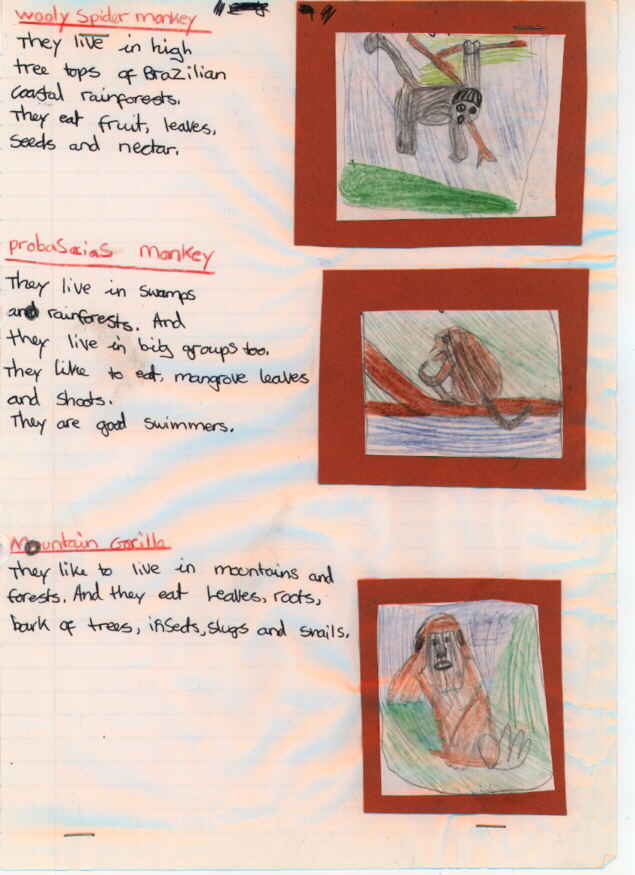 wooly Spider monkey
They live in high
tree tops of Brazilian
coastal rainforests.
They eat fruit, leaves,
seeds and nectar.
probascias monkey
They live in swamps
and rainforests. And
they live in big groups too.
They like to eat, mangrove leaves
and shoots.
They are good swimmers.
Mountain Gorilla
They like to live in mountains and
forests. And they eat Leaves, roots,
bark of trees, insects, slugs and snails.